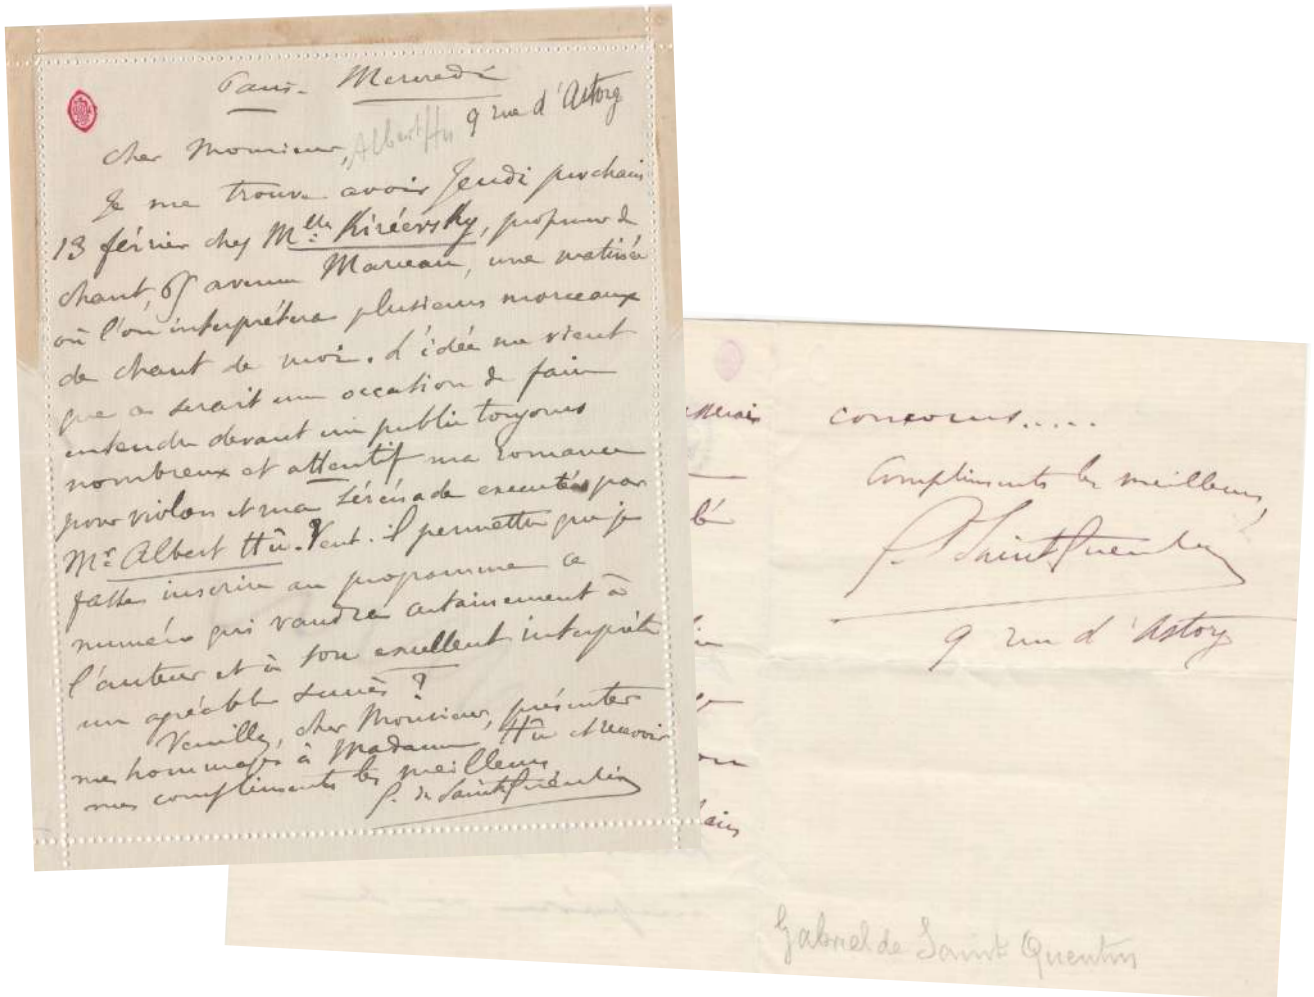 Paris. Mercredi
9 rue d'Astorg
Cher Monsieur, Albert Hu
Je me trouve avoir Jeudi prochain
13 février chez Mlle Kiréevsky, professeur de
chant, 65 avenue Marceau, une matinée
où l'on interprétera plusieurs morceaux
de chant de moi. L'idée me vient
que ce serait une occasion de faire
entendre devant un public toujours
nombreux et attentif ma romance
pour violon et ma Sérénade executées par
Mr Albert Hû. Veut-il permettre que je
fasse inscrire au programme ce
numéro qui vaudra certainement à
l'auteur et à son excellent interprète
un agréable succès ?
Veuillez, cher Monsieur, présenter
mes hommages à Madame Hû et recevoir
mes compliments les meilleurs
G. de Saint Quentin
concours.....
Compliments les meilleurs,
G. Saint Quentin
9 rue d'Astorg
Gabriel de Saint Quentin